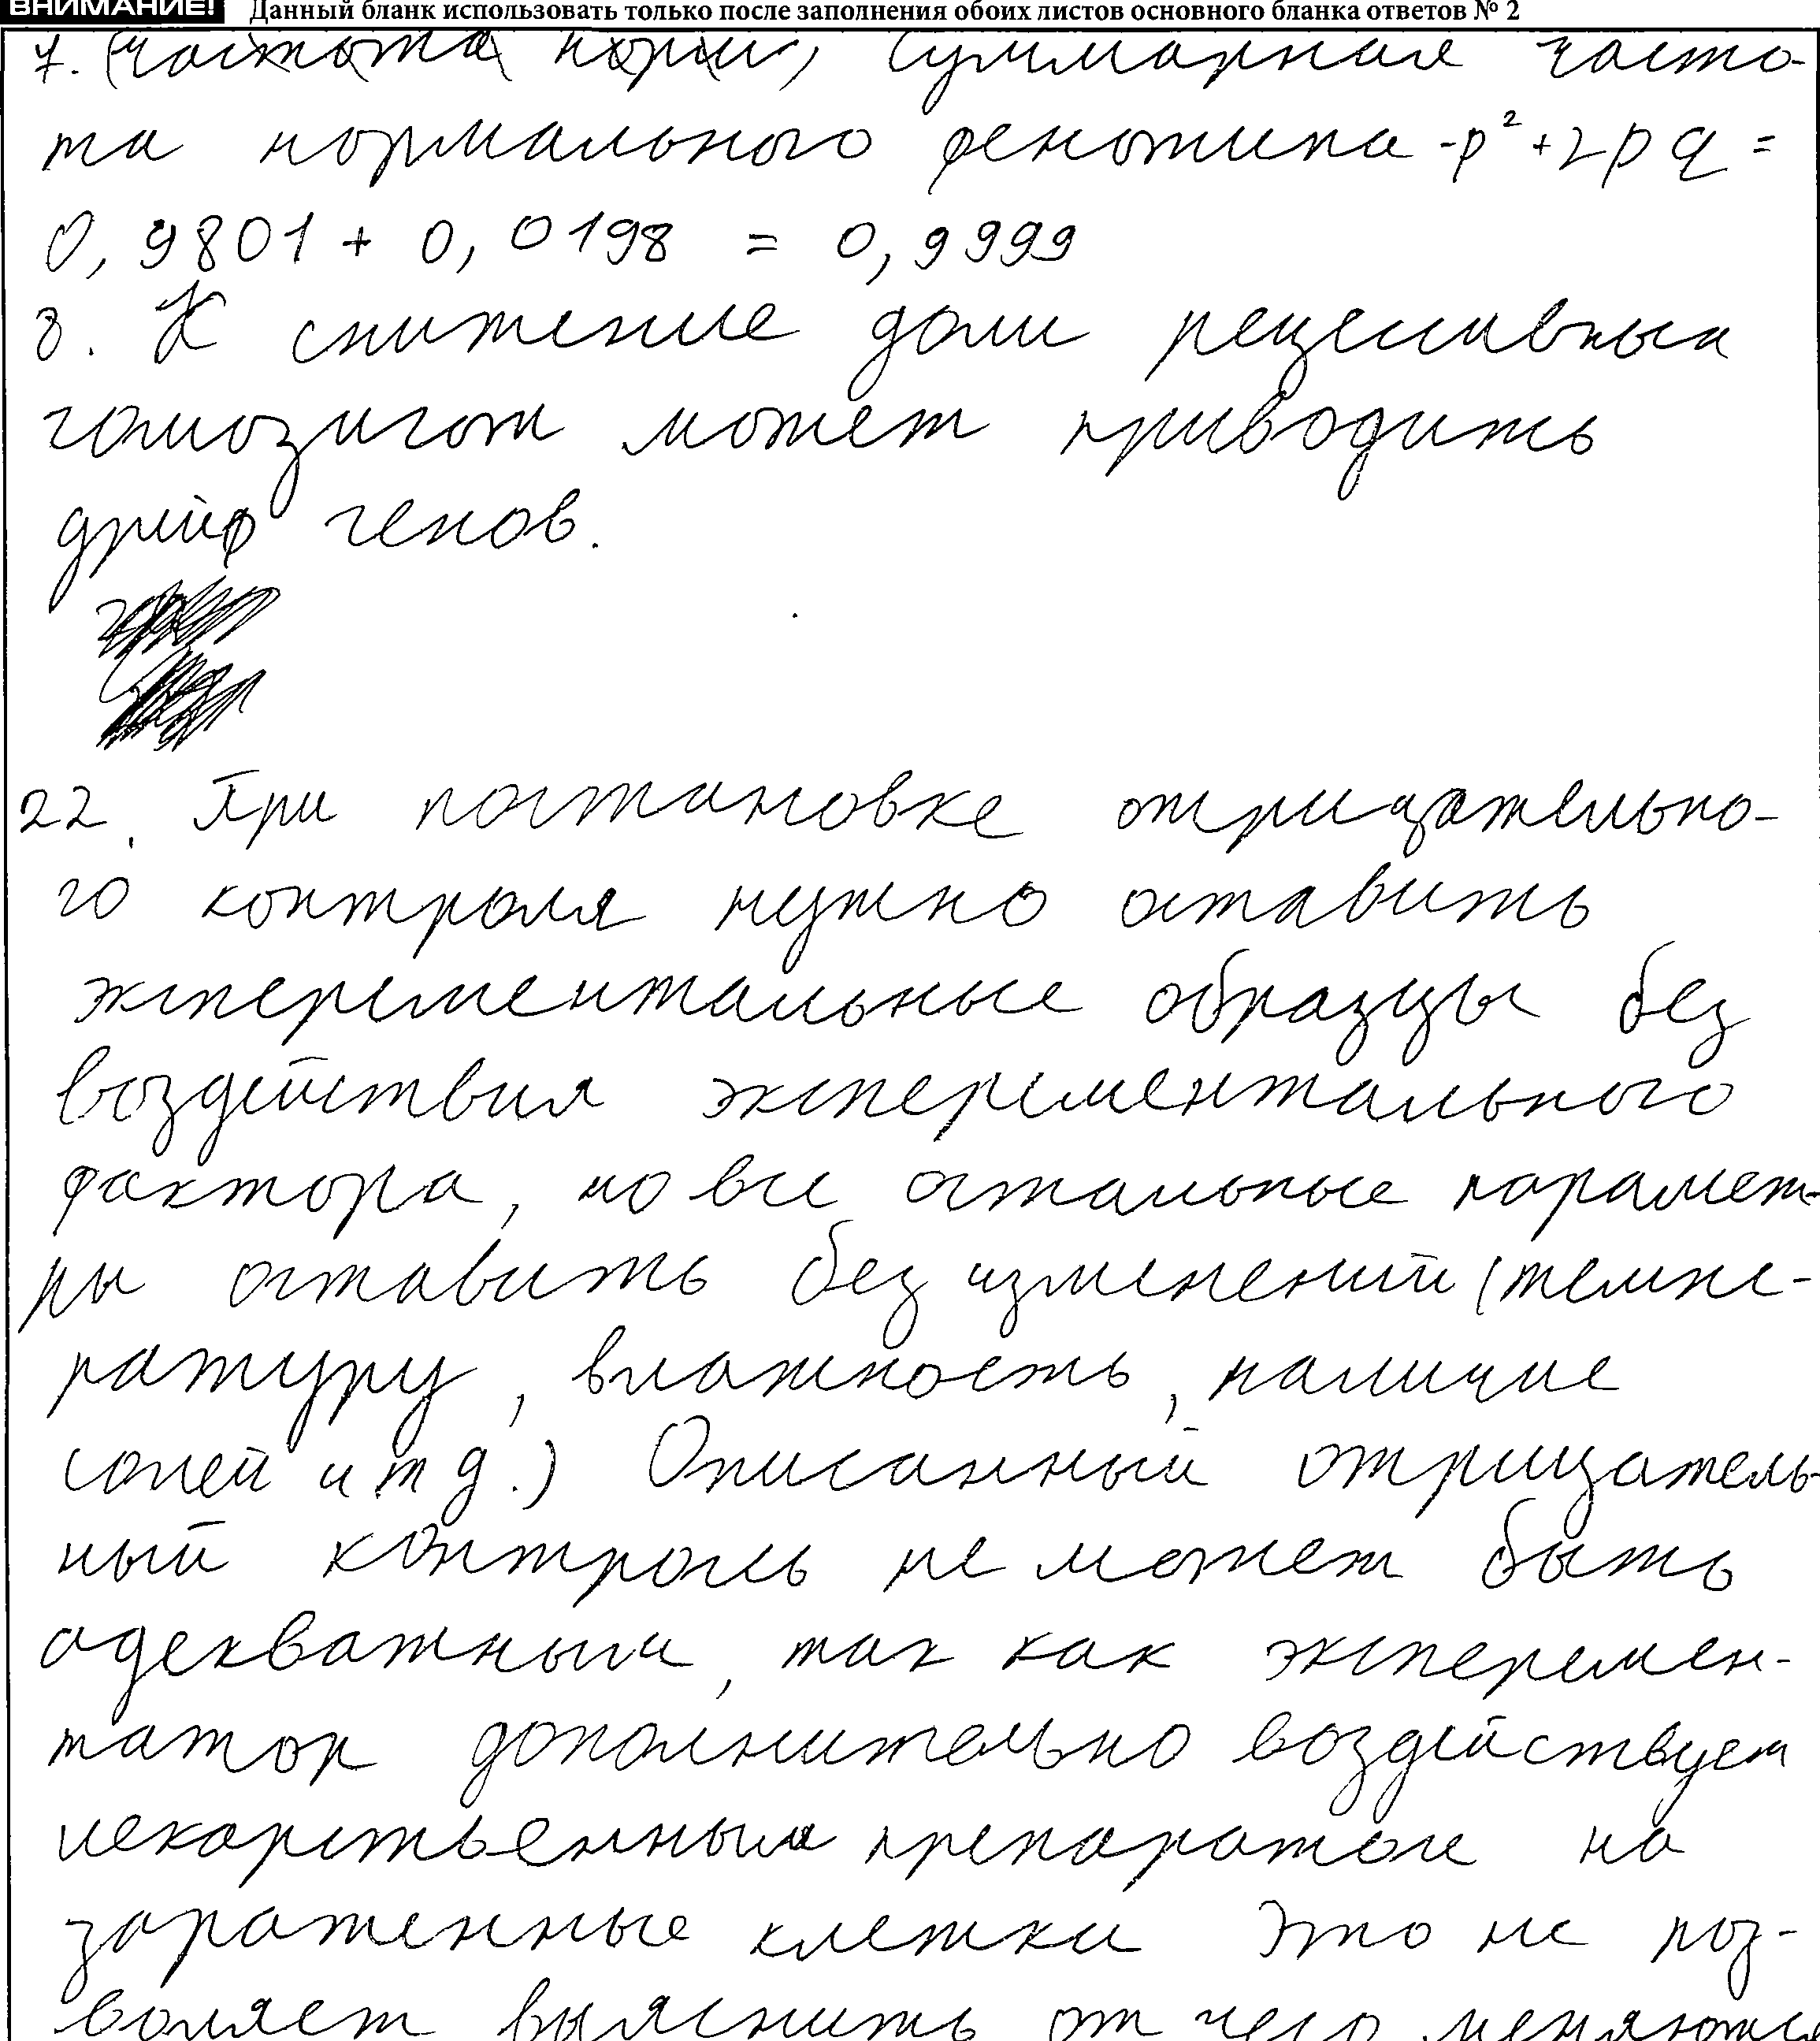 ВНИМАНИЕ! Данный бланк использовать только после заполнения обоих листов основного бланка ответов № 2
7. (частота норм, Суммарная часто-
та нормального фенотипа - p² + 2pq =
0,9801 + 0,0198 = 0,9999
8. К снижение доли рецессивных
гомозигот может приводить
дрейф генов.
22. При постановке отрицательно-
го контроля нужно оставить
экспериментальные образцы без
воздействия эксперементального
фактора, но все остальные парамет-
ры оставить без изменений (темпе-
ратуру, влажность, наличие
солей и т д.) Описанный отрицатель-
ный контроль не может быть
адекватным, так как эксперемен-
татор дополнительно воздействует
лекарственным препаратом на
зараженные клетки Это не поз-
воляет выяснить от чего меняются